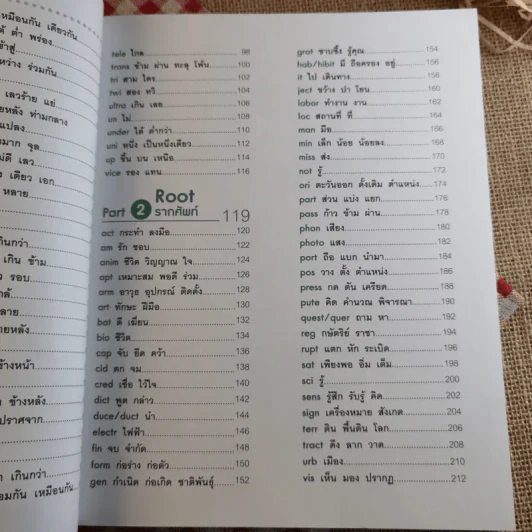 เหมือนกัน เดียวกัน
ต่ำ พร่อง
เข้าสู่
ระหว่าง ร่วมกัน
เลวร้าย แย่
ท่ามกลาง
แปลง
มาก จุล
ไม่ดี เลว
เดียว เอก
หลาย
กว่า
เกิน ข้าม
รอบ
ใกล้
ข้างหน้า
ข้างหลัง
ปราศจาก
เกินกว่า
เหมือนกัน
tele ไกล 98
trans ข้าม ผ่าน ทะลุ โพ้น 100
tri สาม ไตร 102
twi สอง ทวิ 104
ultra เกิน เลย 106
un ไม่ 108
under ใต้ ต่ำกว่า 110
uni หนึ่ง เป็นหนึ่งเดียว 112
up ขึ้น บน เหนือ 114
vice รอง แทน 116
Part 2 Root รากศัพท์ 119
act กระทำ ลงมือ 120
am รัก ชอบ 122
anim ชีวิต วิญญาณ ใจ 124
apt เหมาะสม พอดี ร่วม 126
arm อาวุธ อุปกรณ์ ติดตั้ง 128
art ทักษะ ฝีมือ 130
bat ตี เฆี่ยน 132
bio ชีวิต 134
cap จับ ยึด คว้า 136
cid ตก จม 138
cred เชื่อ ไว้ใจ 140
dict พูด กล่าว 142
duce/duct นำ 144
electr ไฟฟ้า 146
fin จบ จำกัด 148
form ก่อร่าง ก่อตัว 150
gen กำเนิด ก่อเกิด ชาติพันธุ์ 152
grat ซาบซึ้ง รู้คุณ 154
hab/hibit มี ถือครอง อยู่ 156
it ไป เดินทาง 158
ject ขว้าง ปา โยน 160
labor ทำงาน งาน 162
loc สถานที่ ที่ 164
man มือ 166
min เล็ก น้อย น้อยลง 168
miss ส่ง 170
not รู้ 172
ori ตะวันออก ดั้งเดิม ตำแหน่ง 174
part ส่วน แบ่ง แยก 176
pass ก้าว ข้าม ผ่าน 178
phon เสียง 180
photo แสง 182
port ถือ แบก นำมา 184
pos วาง ตั้ง ตำแหน่ง 186
press กด ดัน เครียด 188
pute คิด คำนวณ พิจารณา 190
quest/quer ถาม หา 192
reg กษัตริย์ ราชา 194
rupt แตก หัก ระเบิด 196
sat เพียงพอ อิ่ม เต็ม 198
sci รู้ 200
sens รู้สึก รับรู้ คิด 202
sign เครื่องหมาย สังเกต 204
terr ดิน พื้นดิน โลก 206
tract ดึง ลาก วาด 208
urb เมือง 210
vis เห็น มอง ปรากฏ 212